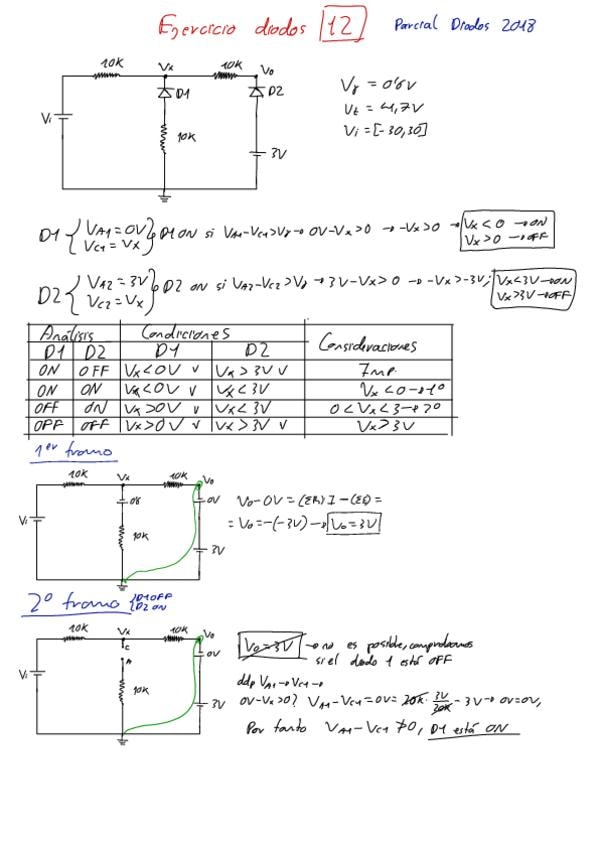 Ejercicio diodos 12 Parcial Diodos 2018
10K Vx 10K Vo
D1 D2
Vi
10K 3V
Vγ = 0'6V
Vt = 4,7V
Vi = [-30,30]
D1 { VA1 = 0V VC1 = Vx } D1 ON si VA1-VC1>Vγ → 0V-Vx>0 → -Vx>0 → Vx<0 → ON
Vx>0 → OFF
D2 { VA2 = 3V VC2 = Vx } D2 ON si VA2-VC2>Vγ → 3V-Vx>0 → -Vx>-3V; Vx<3V → ON
Vx>3V → OFF
Análisis Condiciones Considraciones
D1 D2 D1 D2
ON OFF Vx<0V v Vx>3V v Imp.
ON ON Vx<0V v Vx<3V Vx<0→1º
OFF ON Vx>0V v Vx<3V 0<Vx<3→2º
OFF OFF Vx>0V v Vx>3V v Vx>3V
1er tramo
10K Vx 10K Vo
0V
Vi
10K
3V
Vo-0V = (ΣR)I-(ΣE) =
= Vo = -(-3V) → Vo = 3V
2º tramo { D1 OFF D2 ON
10K Vx 10K Vo
C 0V
A
Vi
10K 3V
Vo = 3V → no es posible, comprobamos
si el diodo 1 está OFF
ddp VA1 → VC1 →
0V-Vx>0? VA1-VC1 = 0V = 20K · 3V/20K - 3V → 0V=0V,
Por tanto VA1-VC1 ≯ 0, D1 está ON